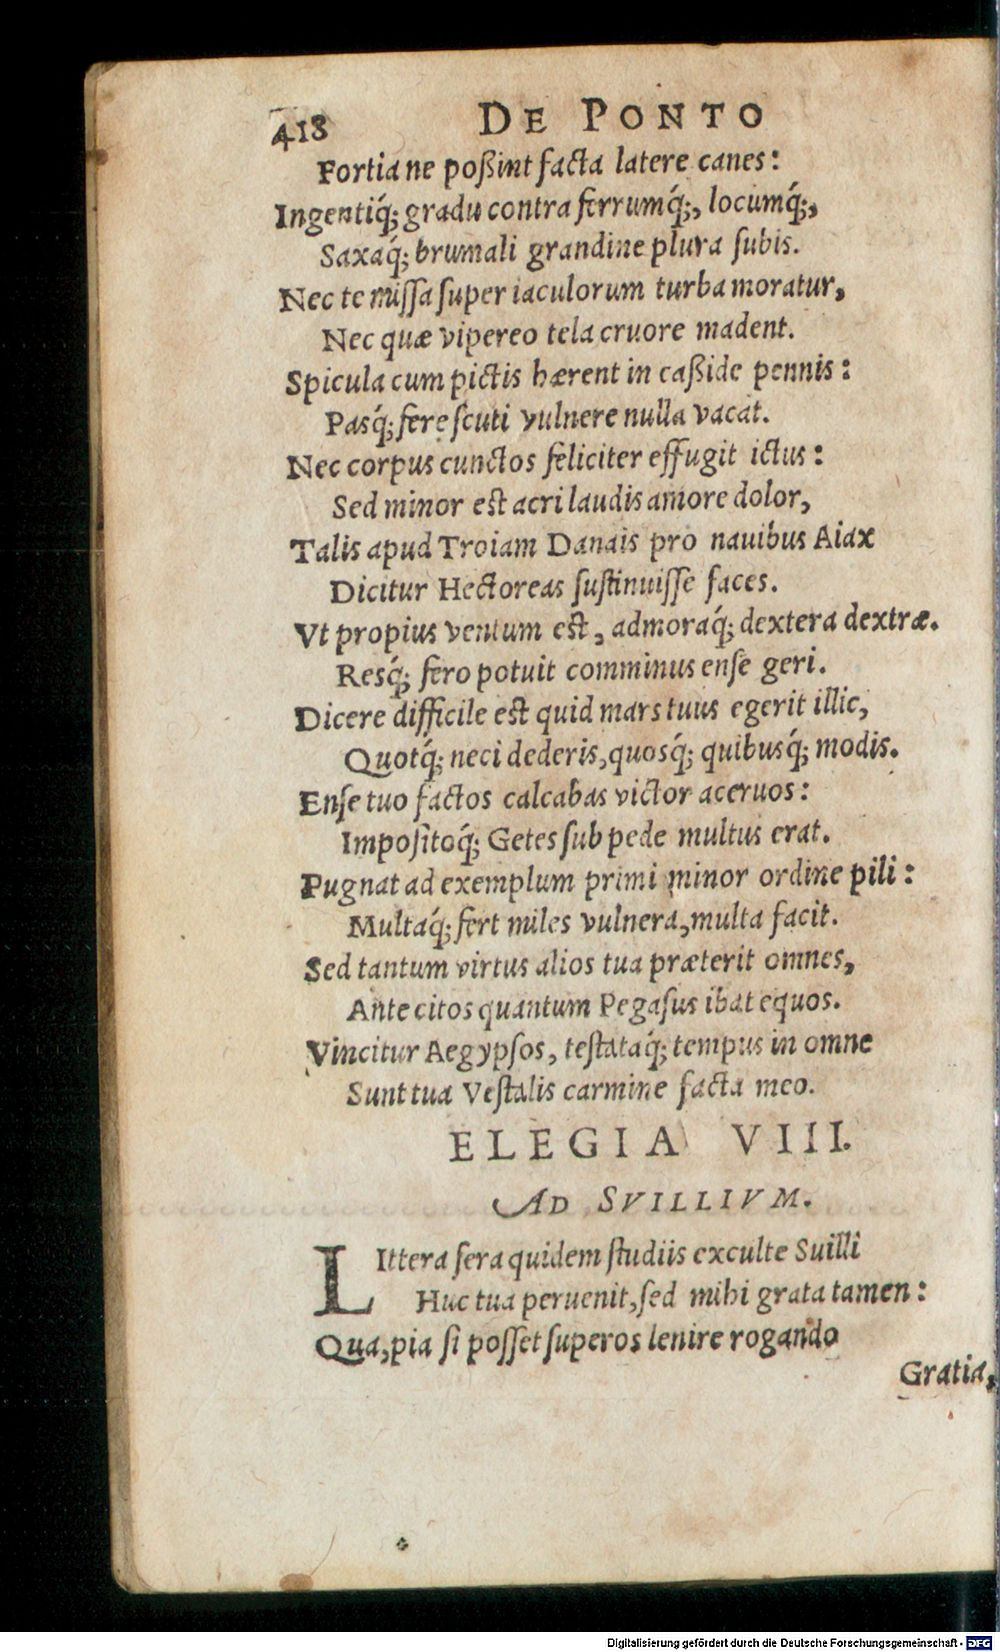 418 DE PONTO
Fortia ne poßint facta latere canes:
Ingentiq́; gradu contra ferrumq́;, locumq́;,
Saxaq́; brumali grandine plura subis.
Nec te missa super iaculorum turba moratur,
Nec quæ vipereo tela cruore madent.
Spicula cum pictis hærent in caßide pennis:
Pasq́; fere scuti vulnere nulla vacat.
Nec corpus cunctos feliciter effugit ictus:
Sed minor est acri laudis amore dolor,
Talis apud Troiam Danais pro nauibus Aiax
Dicitur Hectoreas sustinuisse faces.
Vt propius ventum est, admoraq́; dextera dextræ.
Resq́; fero potuit comminus ense geri.
Dicere difficile est quid mars tuus egerit illic,
Quotq́; neci dederis, quosq́; quibusq́; modis.
Ense tuo factos calcabas victor aceruos:
Impositoq́; Getes sub pede multus erat.
Pugnat ad exemplum primi minor ordine pili:
Multaq́; fert miles vulnera, multa facit.
Sed tantum virtus alios tua præterit omnes,
Ante citos quantum Pegasus ibat equos.
Vincitur Aegypsos, testataq́; tempus in omne
Sunt tua Vestalis carmine facta meo.
ELEGIA VIII.
AD SVILLIVM.
LIttera sera quidem studiis exculte Suilli
Huc tua peruenit, sed mihi grata tamen:
Qua, pia si posset superos lenire rogando
Gratia,
Digitalisierung gefördert durch die Deutsche Forschungsgemeinschaft - DFG